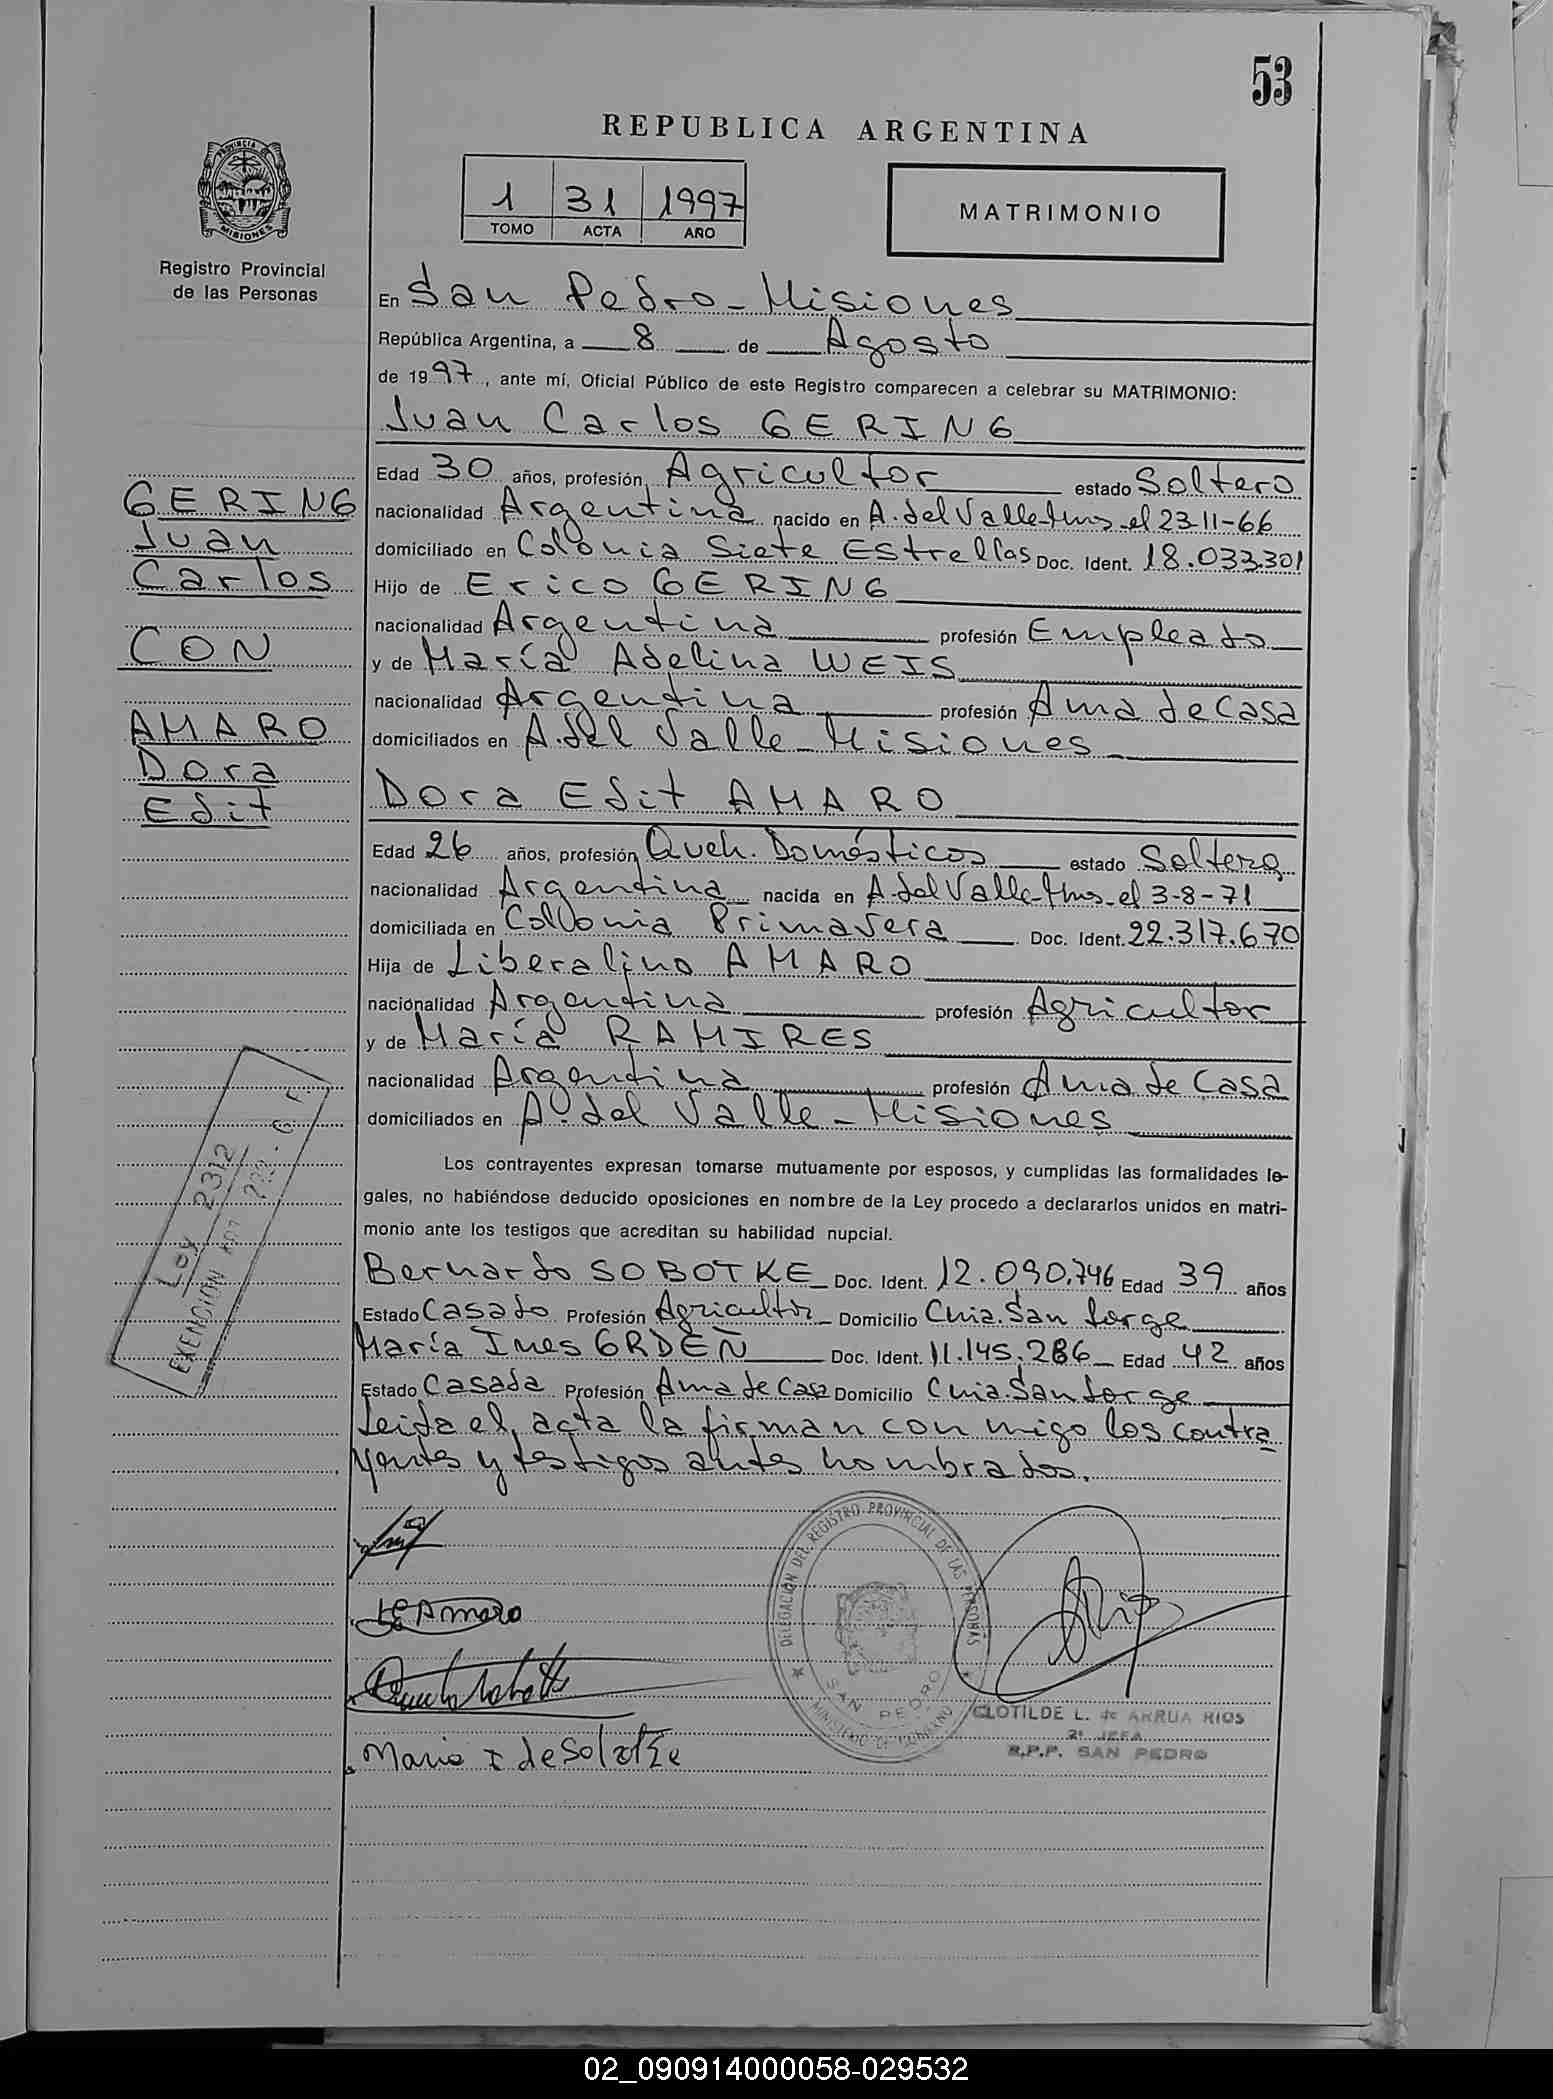 53
REPUBLICA ARGENTINA
PROVINCIA DE
MISIONES
Registro Provincial
de las Personas
1 31 1997
TOMO ACTA AÑO
MATRIMONIO
En San Pedro - Misiones
República Argentina, a 8 de Agosto
de 1997, ante mí, Oficial Público de este Registro comparecen a celebrar su MATRIMONIO:
Juan Carlos GERING
Edad 30 años, profesión Agricultor estado Soltero
nacionalidad Argentina nacido en A. del Valle-Mnes-el 23-11-66
domiciliado en Colonia Siete Estrellas Doc. Ident. 18.033.301
Hijo de Erico GERING
nacionalidad Argentina profesión Empleado
y de María Adelina WEIS
nacionalidad Argentina profesión Ama de Casa
domiciliados en A. del Valle - Misiones
GERING
Juan
Carlos
CON
AMARO
Dora
Edit
Dora Edit AMARO
Edad 26 años, profesión Queh. Domésticos estado Soltera
nacionalidad Argentina nacida en A. del Valle-Mnes-el 3-8-71
domiciliada en Colonia Primavera Doc. Ident. 22.317.670
Hija de Liberalino AMARO
nacionalidad Argentina profesión Agricultor
y de María RAMIRES
nacionalidad Argentina profesión Ama de Casa
domiciliados en A. del Valle - Misiones
Los contrayentes expresan tomarse mutuamente por esposos, y cumplidas las formalidades le-
gales, no habiéndose deducido oposiciones en nombre de la Ley procedo a declararlos unidos en matri-
monio ante los testigos que acreditan su habilidad nupcial.
Ley 2312
EXENCIÓN
Bernardo SOBOTKE Doc. Ident. 12.090.746 Edad 39 años
Estado Casado Profesión Agricultor Domicilio Cnia. San Jorge
María Ines GRDEÑ Doc. Ident. 11.145.286 Edad 42 años
Estado Casada Profesión Ama de Casa Domicilio Cnia. San Jorge
Leida el acta la firman con migo los contra
yentes y testigos antes nombrados.
DELEGACIÓN DEL REGISTRO PROVINCIAL DE LAS PERSONAS
SAN PEDRO
MINISTERIO DE GOBIERNO
Amaro
CLOTILDE L. de ARRUA RIOS
2ª JEFA
R.P.P. SAN PEDRO
02_090914000058-029532